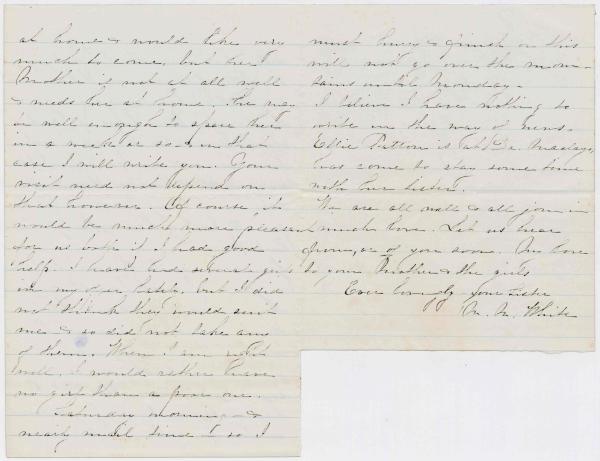 at home & would like very
much to come, but her
Mother is not at all well
& needs her at home. She may
be well enough to spare her
in a week or so & in that
case I will write you. Your
visit need not depend on
that however. Of course it
would be much more pleasant
for us both if I had good
help. I have had several girls
in my of late, but I did
not think they would suit
me & so did not take any
of them. When I am right
well, I would rather have
no girl than a poor one.
Saturday morning &
nearly mail time & so I
must hurry & finish or this
will not go over the moun-
tains until Monday.
I believe I have nothing to
write in the way of news.
Effie Patton is at Dr. Maclays,
has come to stay some time
with her sister.
We are all well & all join in
much love. Let us hear
from, or of you soon. My love
to your Mother & the girls
Ever your sister
M. M. White